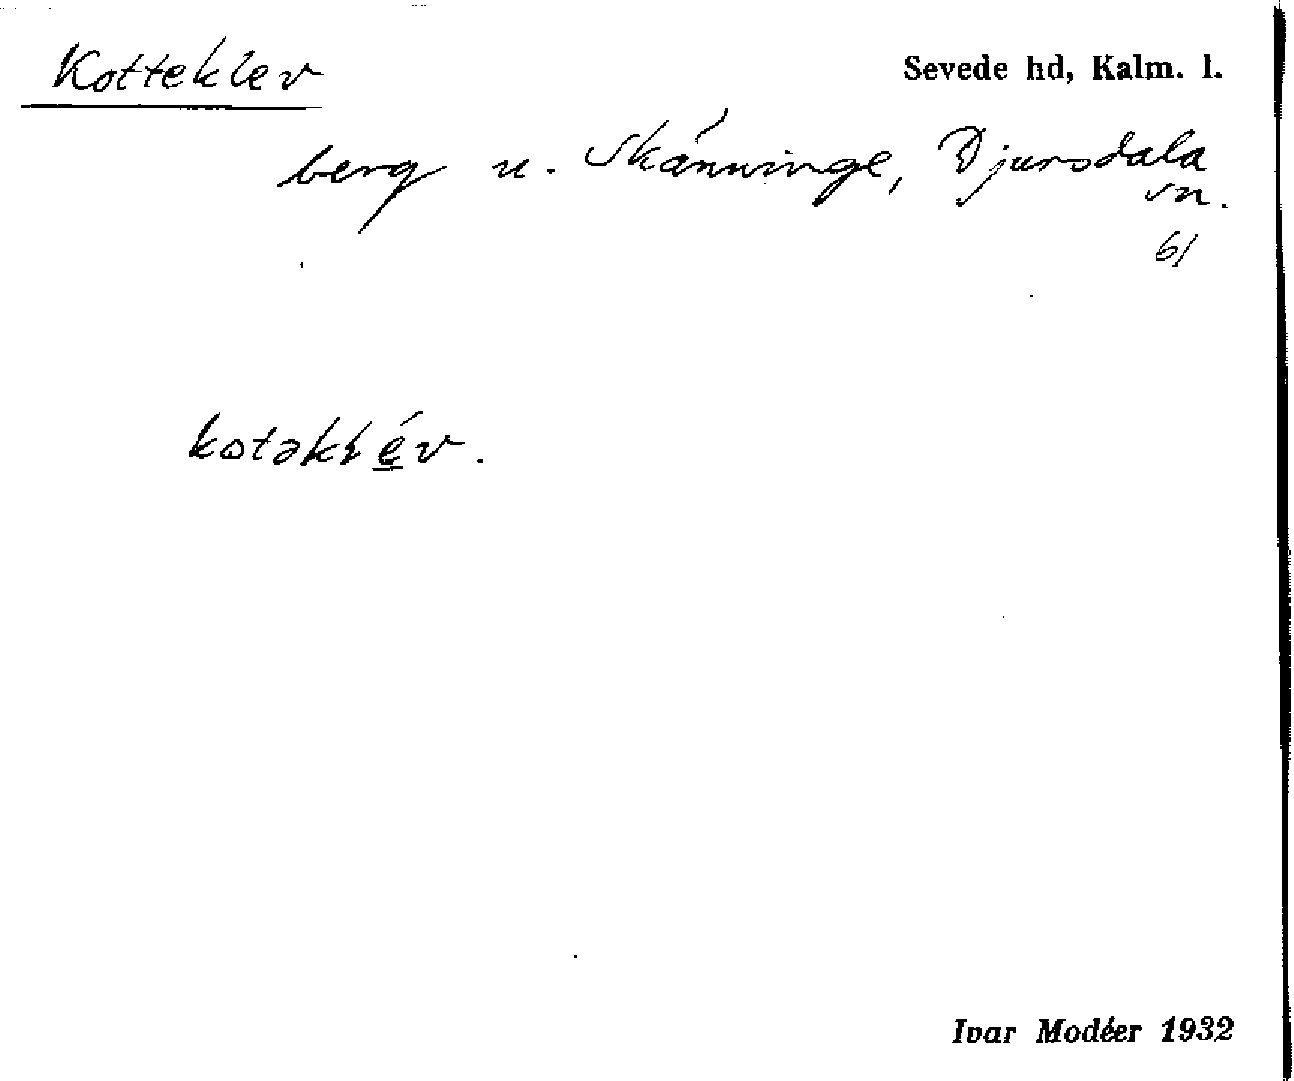 Kotteklev
Sevede hd, Kalm. l.
berg u. Skänninge, Djursdala
sn.
61
kotəklév.
Ivar Modéer 1932